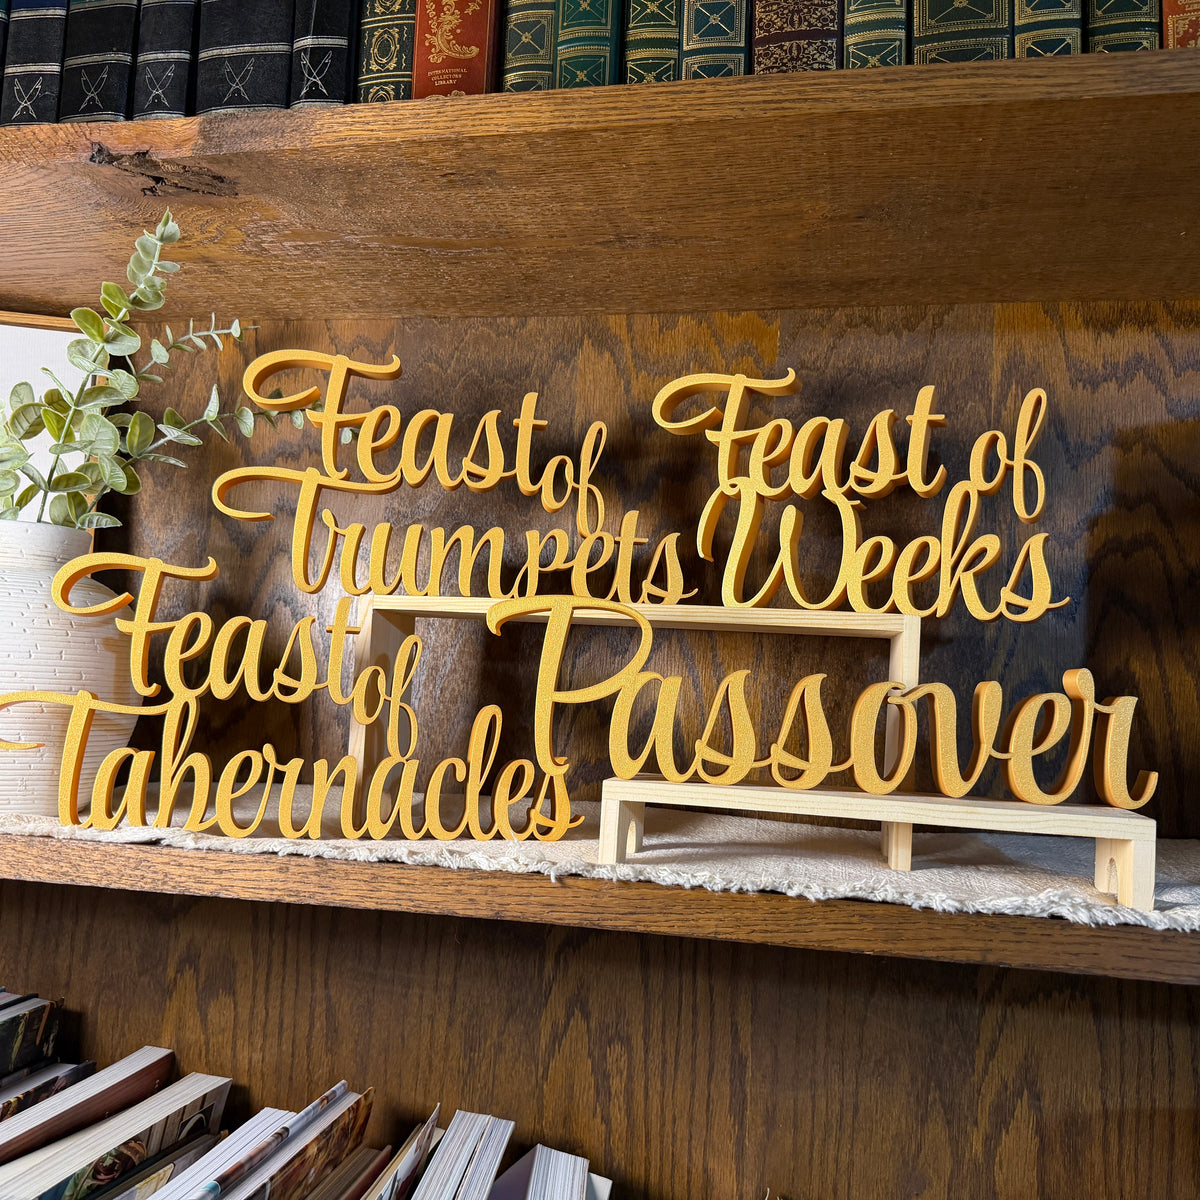 INTERNATIONAL
COLLECTORS
LIBRARY
Feast of
Trumpets
Feast of
Weeks
Feast of
Tabernacles
Passover